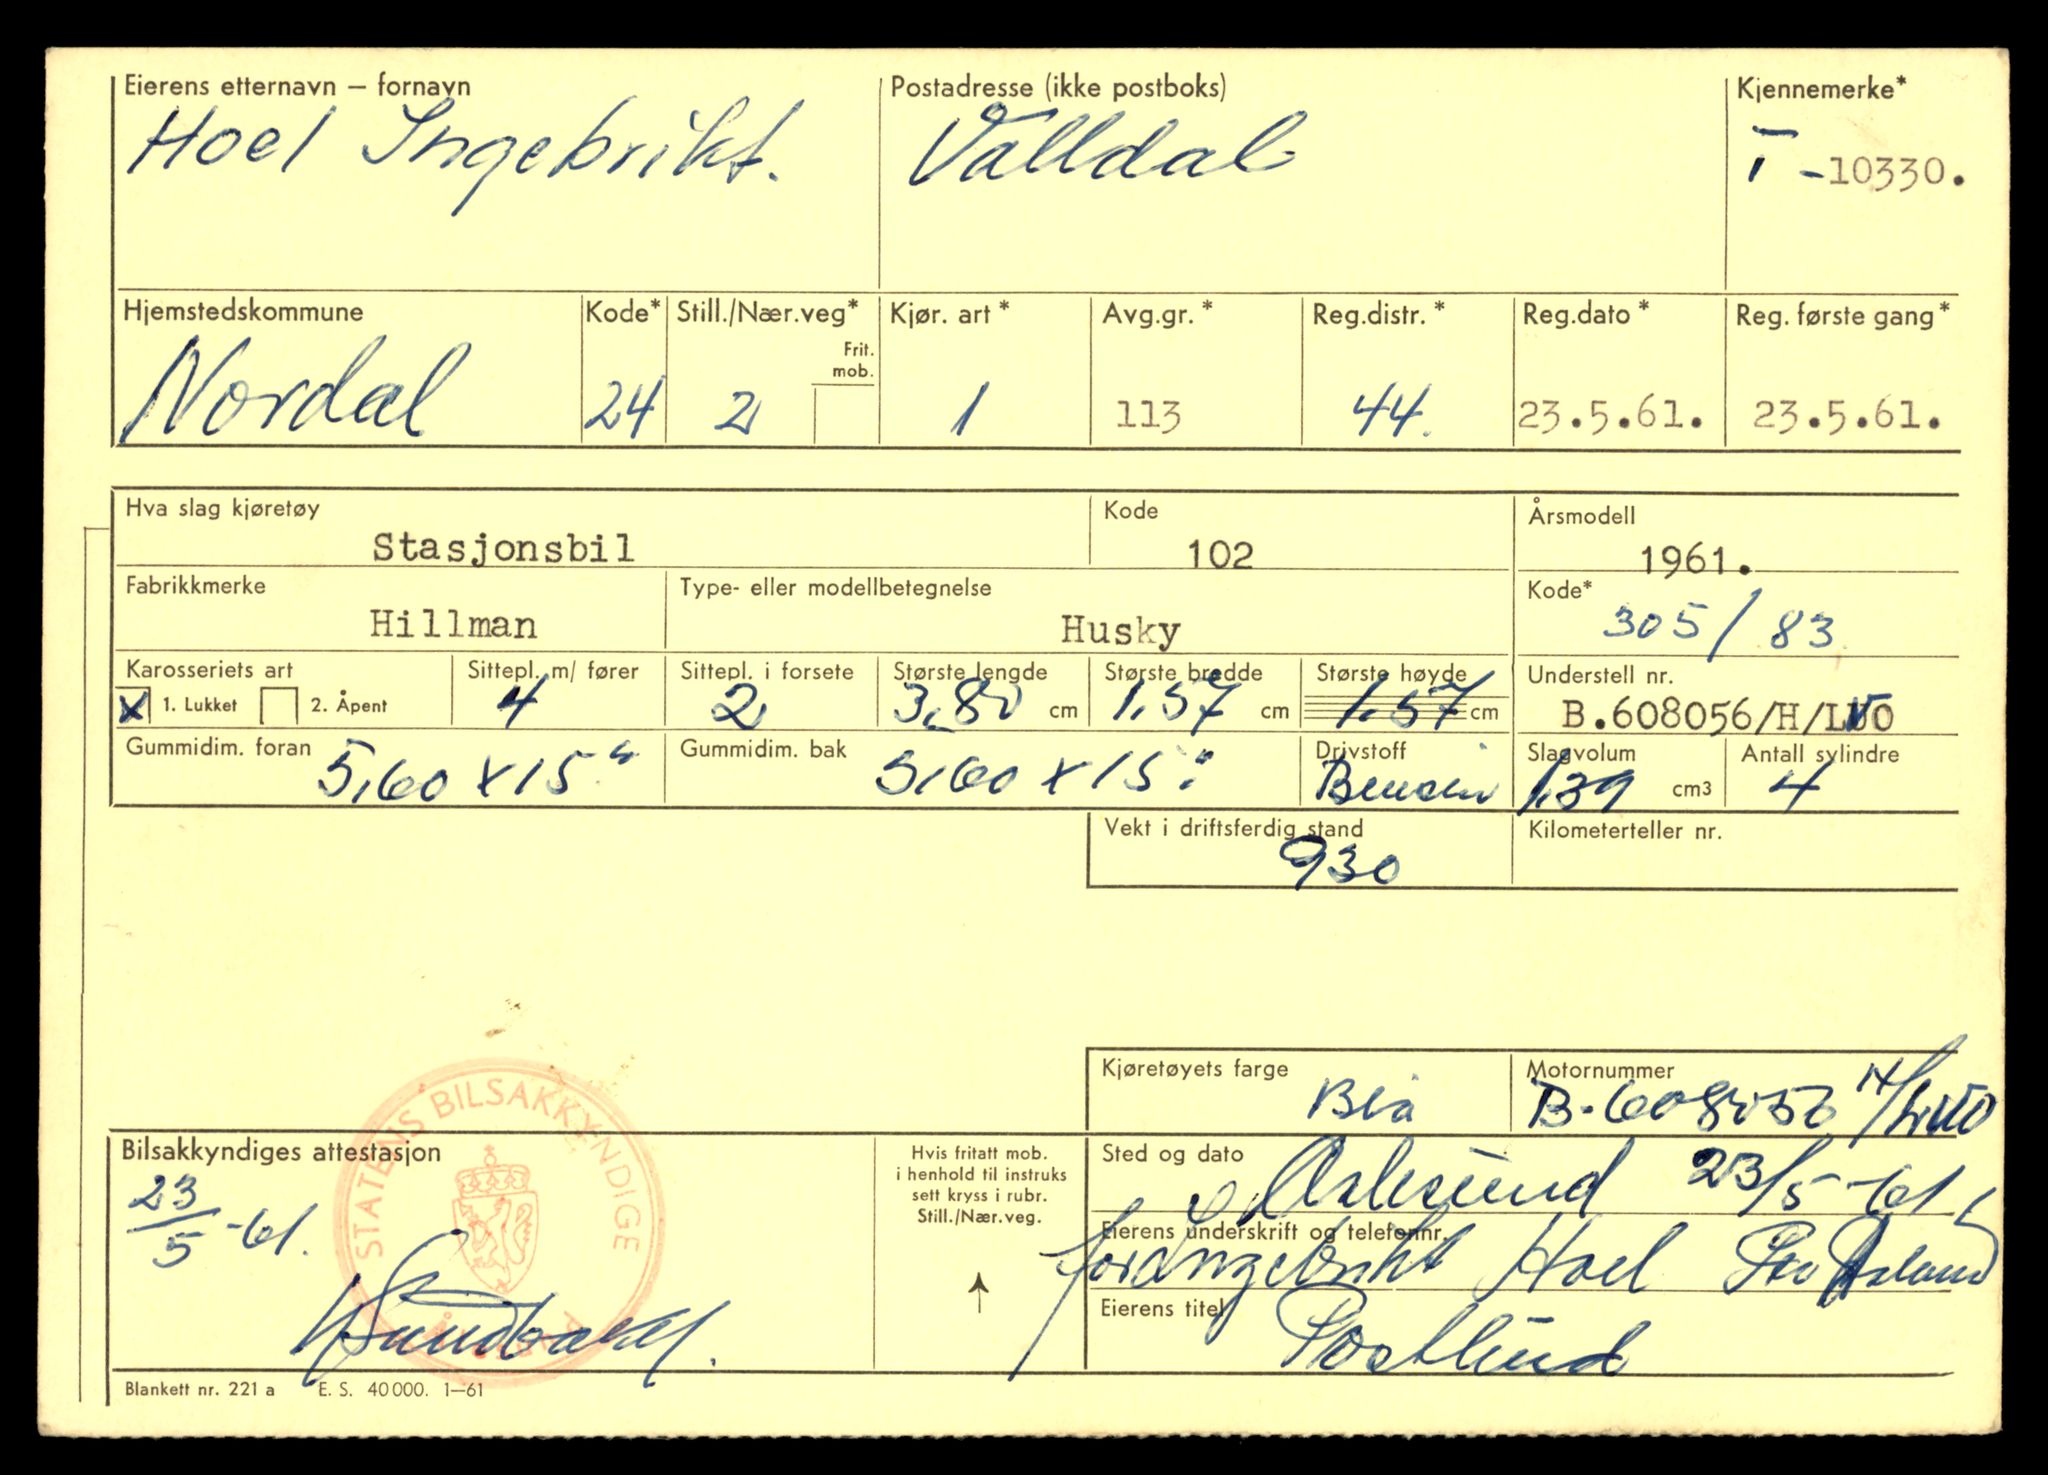 Eierens etternavn – fornavn Postadresse (ikke postboks) Kjennemerke*
Hoel Ingebrikt. Valldal T -10330.
Hjemstedskommune Kode* Still./Nær.veg* Kjør. art* Avg.gr.* Reg.distr.* Reg.dato* Reg. første gang*
Frit. mob.
Nordal 24 2 1 113 44. 23.5.61. 23.5.61.
Hva slag kjøretøy Kode Årsmodell
Stasjonsbil 102 1961.
Fabrikkmerke Type- eller modellbetegnelse Kode*
Hillman Husky 305/83
Karosseriets art Sittepl. m/ fører Sittepl. i forsete Største lengde Største bredde Største høyde Understell nr.
x 1. Lukket 2. Åpent 4 2 3,80 cm 1,57 cm 1,57 cm B.608056/H/LVO
Gummidim. foran Gummidim. bak Drivstoff Slagvolum Antall sylindre
5,60 x 15" 5,60 x 15" Bensin 1,39 cm3 4
Vekt i driftsferdig stand Kilometerteller nr.
930
Kjøretøyets farge Motornummer
Blå B-608056 H/LVO
STATENS BILSAKKYNDIGE
Bilsakkyndiges attestasjon Hvis fritatt mob. Sted og dato
i henhold til instruks
sett kryss i rubr.
Still./Nær.veg.
23/5-61. Aalesund 23/5-61
Eierens underskrift og telefonnr.
for Ingebrikt Hoel
Eierens titel
Blankett nr. 221 a E. S. 40000. 1–61